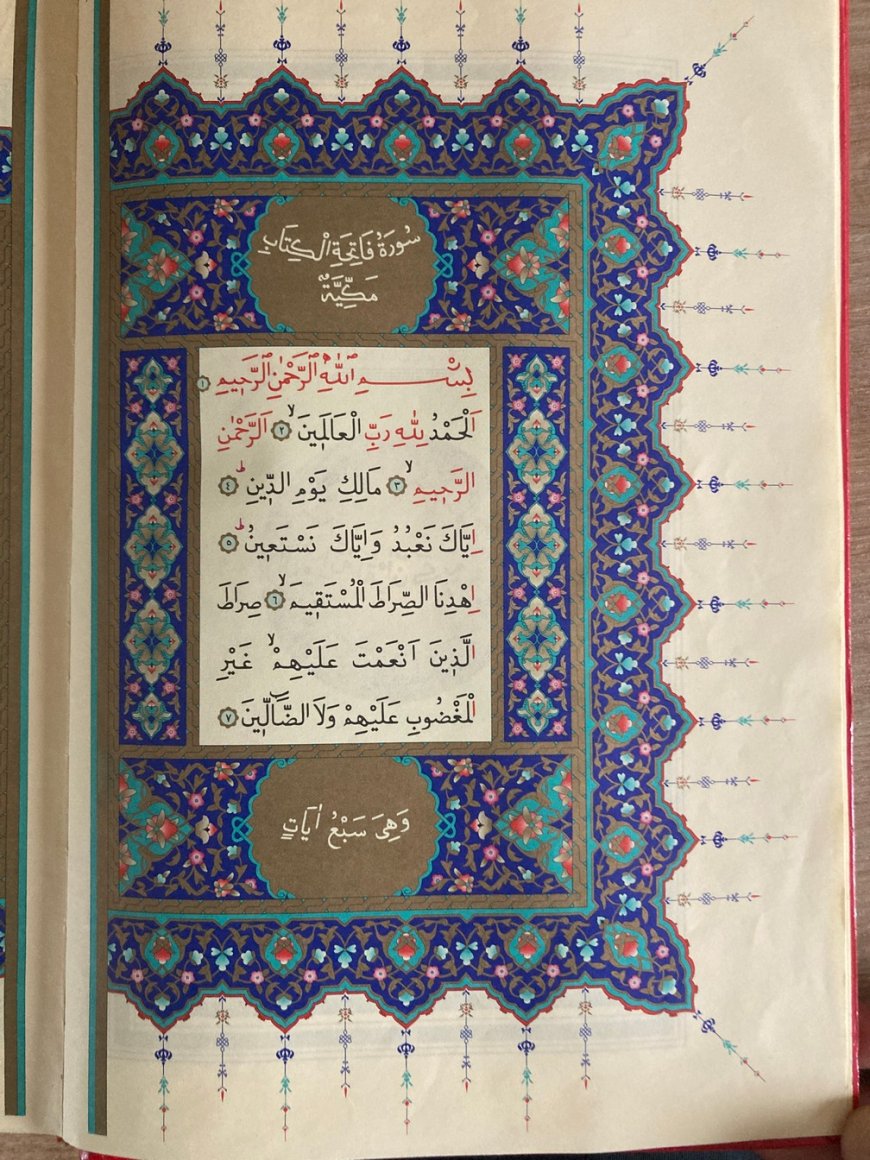 سُورَةُ فَاتِحَةِ الْكِتَابِ
مَكِّيَّةٌ
بِسْمِ اللّٰهِ الرَّحْمٰنِ الرَّح۪يمِ ١
اَلْحَمْدُ لِلّٰهِ رَبِّ الْعَالَم۪ينَۙ ٢ اَلرَّحْمٰنِ
الرَّح۪يمِۙ ٣ مَالِكِ يَوْمِ الدّ۪ينِۜ ٤
اِيَّاكَ نَعْبُدُ وَاِيَّاكَ نَسْتَع۪ينُۜ ٥
اِهْدِنَا الصِّرَاطَ الْمُسْتَق۪يمَۙ ٦ صِرَاطَ
الَّذ۪ينَ اَنْعَمْتَ عَلَيْهِمْۙ غَيْرِ
الْمَغْضُوبِ عَلَيْهِمْ وَلَا الضَّٓالّ۪ينَ ٧
وَهِيَ سَبْعُ اٰيَاتٍ